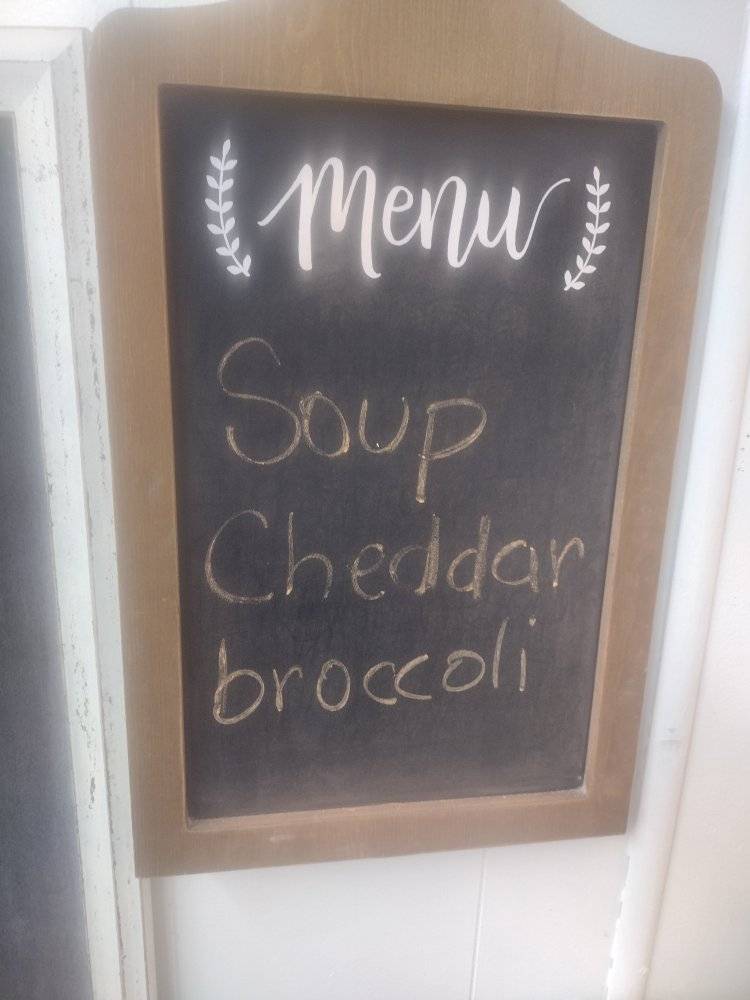 Menu
Soup
Cheddar
broccoli